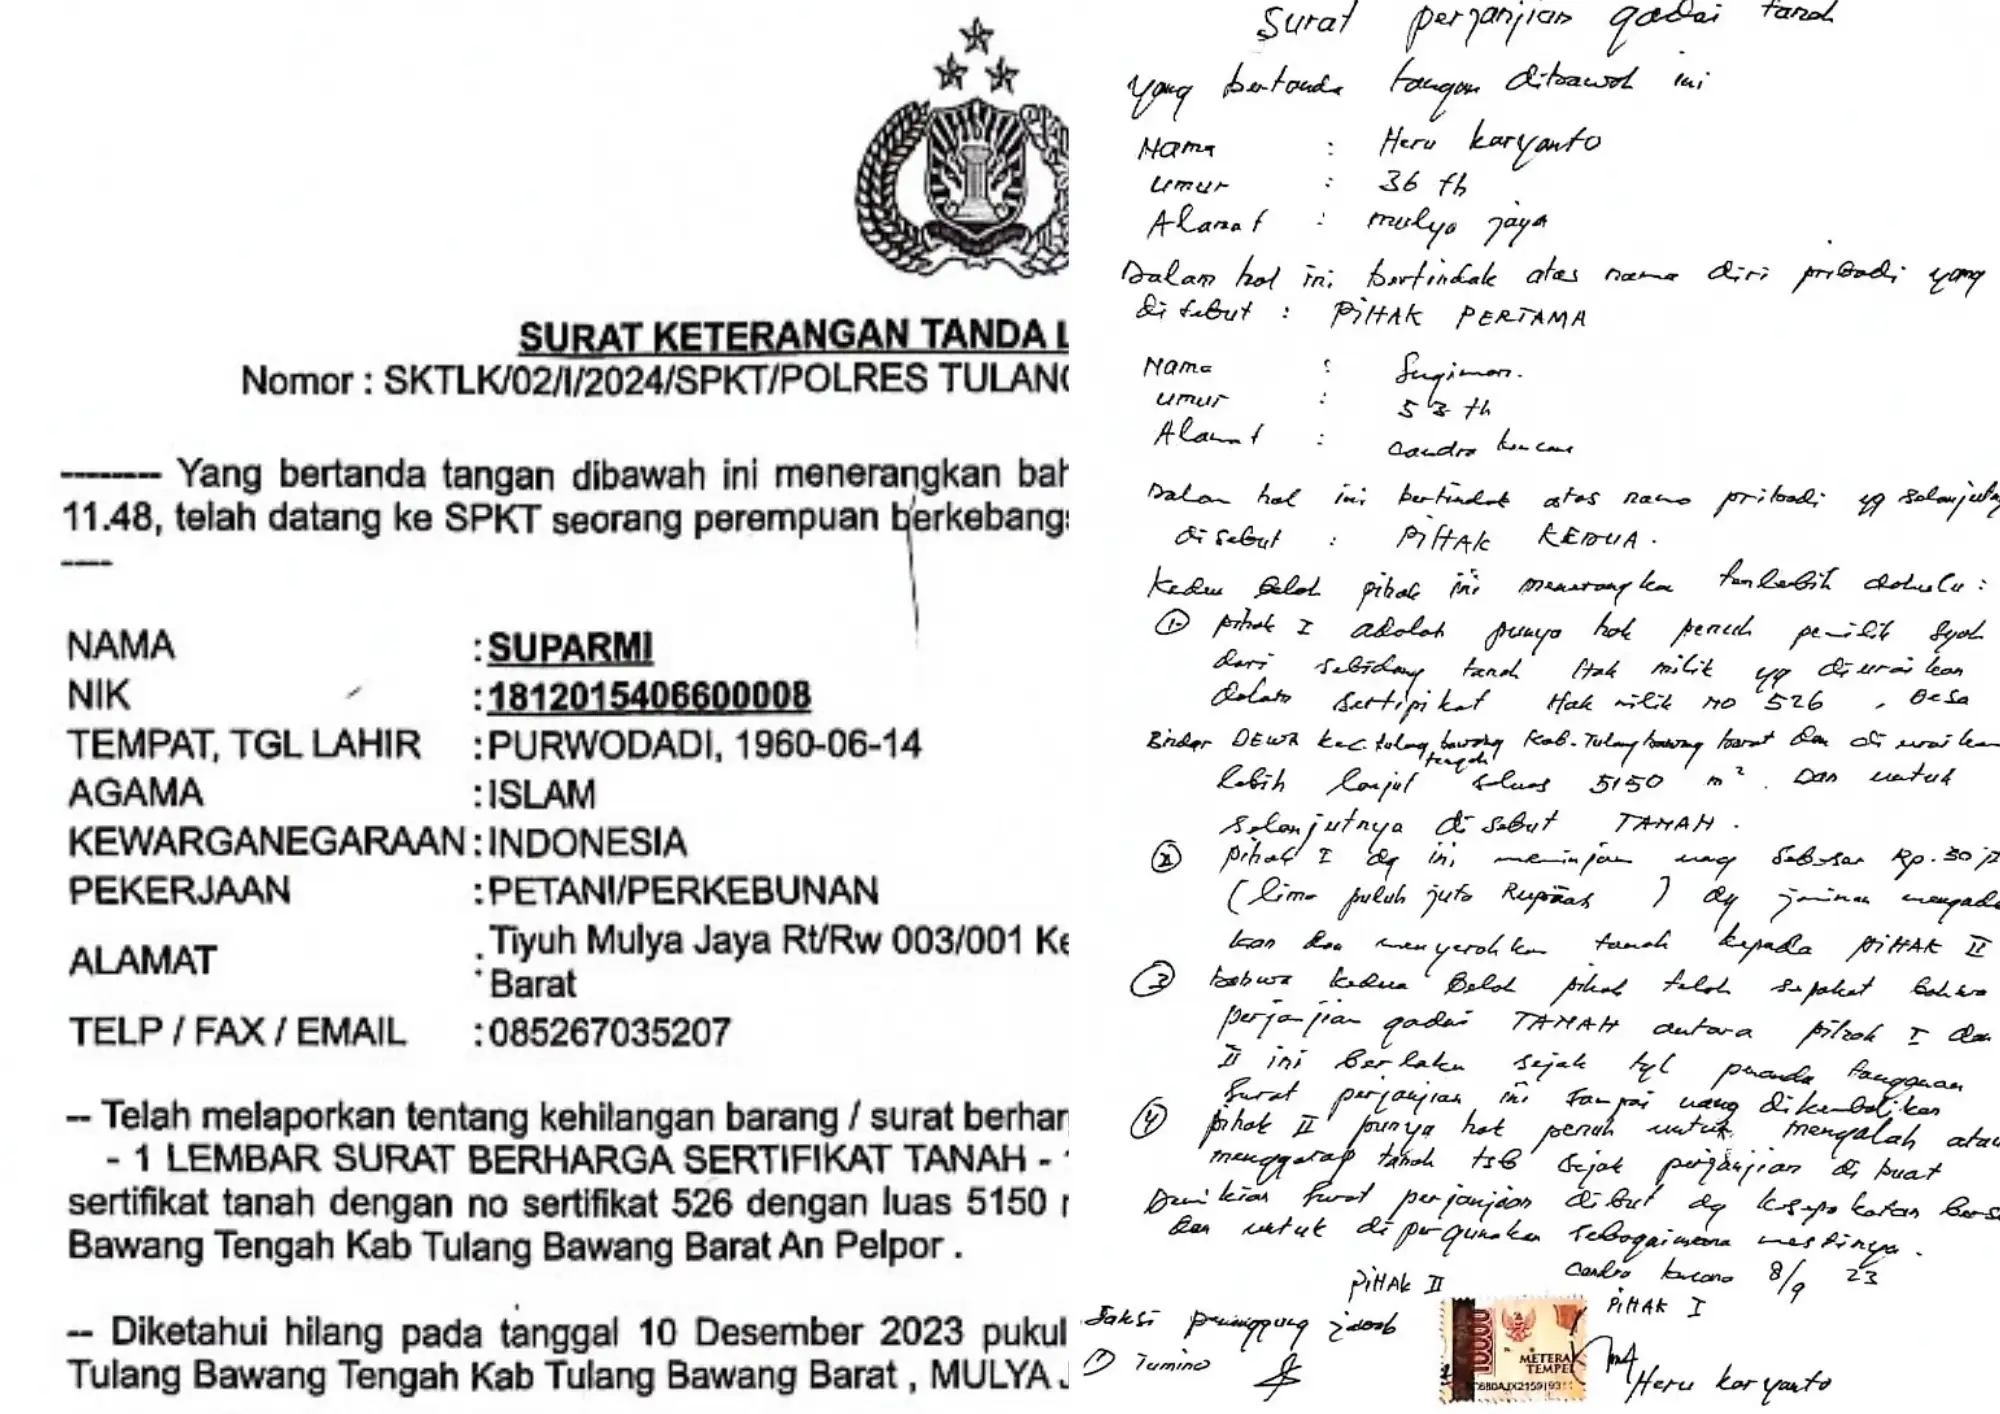 SURAT KETERANGAN TANDA L
Nomor : SKTLK/02/I/2024/SPKT/POLRES TULANG
-------- Yang bertanda tangan dibawah ini menerangkan bah
11.48, telah datang ke SPKT seorang perempuan berkebangs
----
NAMA : SUPARMI
NIK : 1812015406600008
TEMPAT, TGL LAHIR : PURWODADI, 1960-06-14
AGAMA : ISLAM
KEWARGANEGARAAN : INDONESIA
PEKERJAAN : PETANI/PERKEBUNAN
ALAMAT : Tiyuh Mulya Jaya Rt/Rw 003/001 Ke
Barat
TELP / FAX / EMAIL : 085267035207
-- Telah melaporkan tentang kehilangan barang / surat berhar
- 1 LEMBAR SURAT BERHARGA SERTIFIKAT TANAH -
sertifikat tanah dengan no sertifikat 526 dengan luas 5150
Bawang Tengah Kab Tulang Bawang Barat An Pelpor .
-- Diketahui hilang pada tanggal 10 Desember 2023 pukul
Tulang Bawang Tengah Kab Tulang Bawang Barat , MULYA J
Surat perjanjian gadai tanah
Yang bertanda tangan dibawah ini
Nama : Heru karyanto
umur : 36 th
Alamat : mulyo jaya
Dalam hal ini bertindak atas nama diri pribadi yang
di sebut : PIHAK PERTAMA
Nama : Sugiman.
umur : 53 th
Alamat : Candra kencana
Dalam hal ini bertindak atas nama pribadi yg selanjutny
di sebut : PIHAK KEDUA .
Kedua belah pihak ini menerangkan terlebih dahulu :
1. pihak I adalah punya hak penuh pemilik syah
dari sebidang tanah Hak milik yg diuraikan
dalam sertipikat Hak milik no 526 , Desa
Bindar DEWA kec. tulang bawang tengah kab. Tulang bawang barat dan di uraikan
lebih lanjut seluas 5150 m² . Dan untuk
selanjutnya di sebut TANAH .
2 pihak I dg ini meminjam uang sebesar Rp. 50 j
(lima puluh juta Rupiaah) dg jaminan mengada
kan dan menyerahkan tanah kepada PIHAK II
3 bahwa kedua belah pihak telah sepakat bahwa
perjanjian gadai TANAH antara pihak I dan
II ini berlaku sejak tgl penanda tanganan
surat perjanjian ini sampai uang dikembalikan
4 pihak II punya hak penuh untuk mengalah atau
menggarap tanah tsb sejak perjanjian di buat
Demikian surat perjanjian dibuat dg kesepakatan bers
dan untuk dipergunakan sebagaimana mestinya .
Candra kencana 8/9 23
PIHAK II PIHAK I
Saksi penanggung jawab
1 Tumino
10000
METERAI
TEMPEL
Heru karyanto